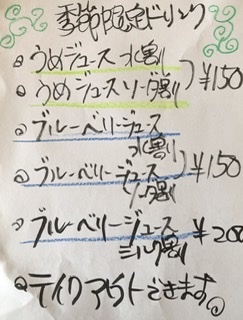 季節限定ドリンク
うめジュース 水割り
うめジュース ソーダ割り ¥150
ブルーベリージュース
水割り
ブルーベリージュース ¥150
ソーダ割り
ブルーベリージュース ¥200
ミルク割り
テイクアウトできます。